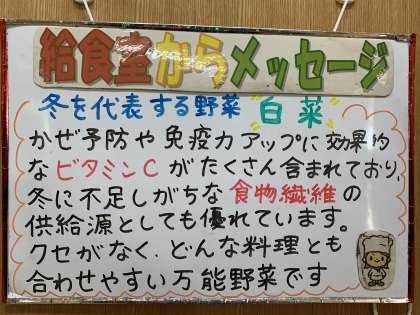 給食室からメッセージ
冬を代表する野菜 "白菜"
かぜ予防や免疫力アップに効果的
なビタミンCがたくさん含まれており、
冬に不足しがちな食物繊維の
供給源としても優れています。
クセがなく、どんな料理とも
合わせやすい万能野菜です